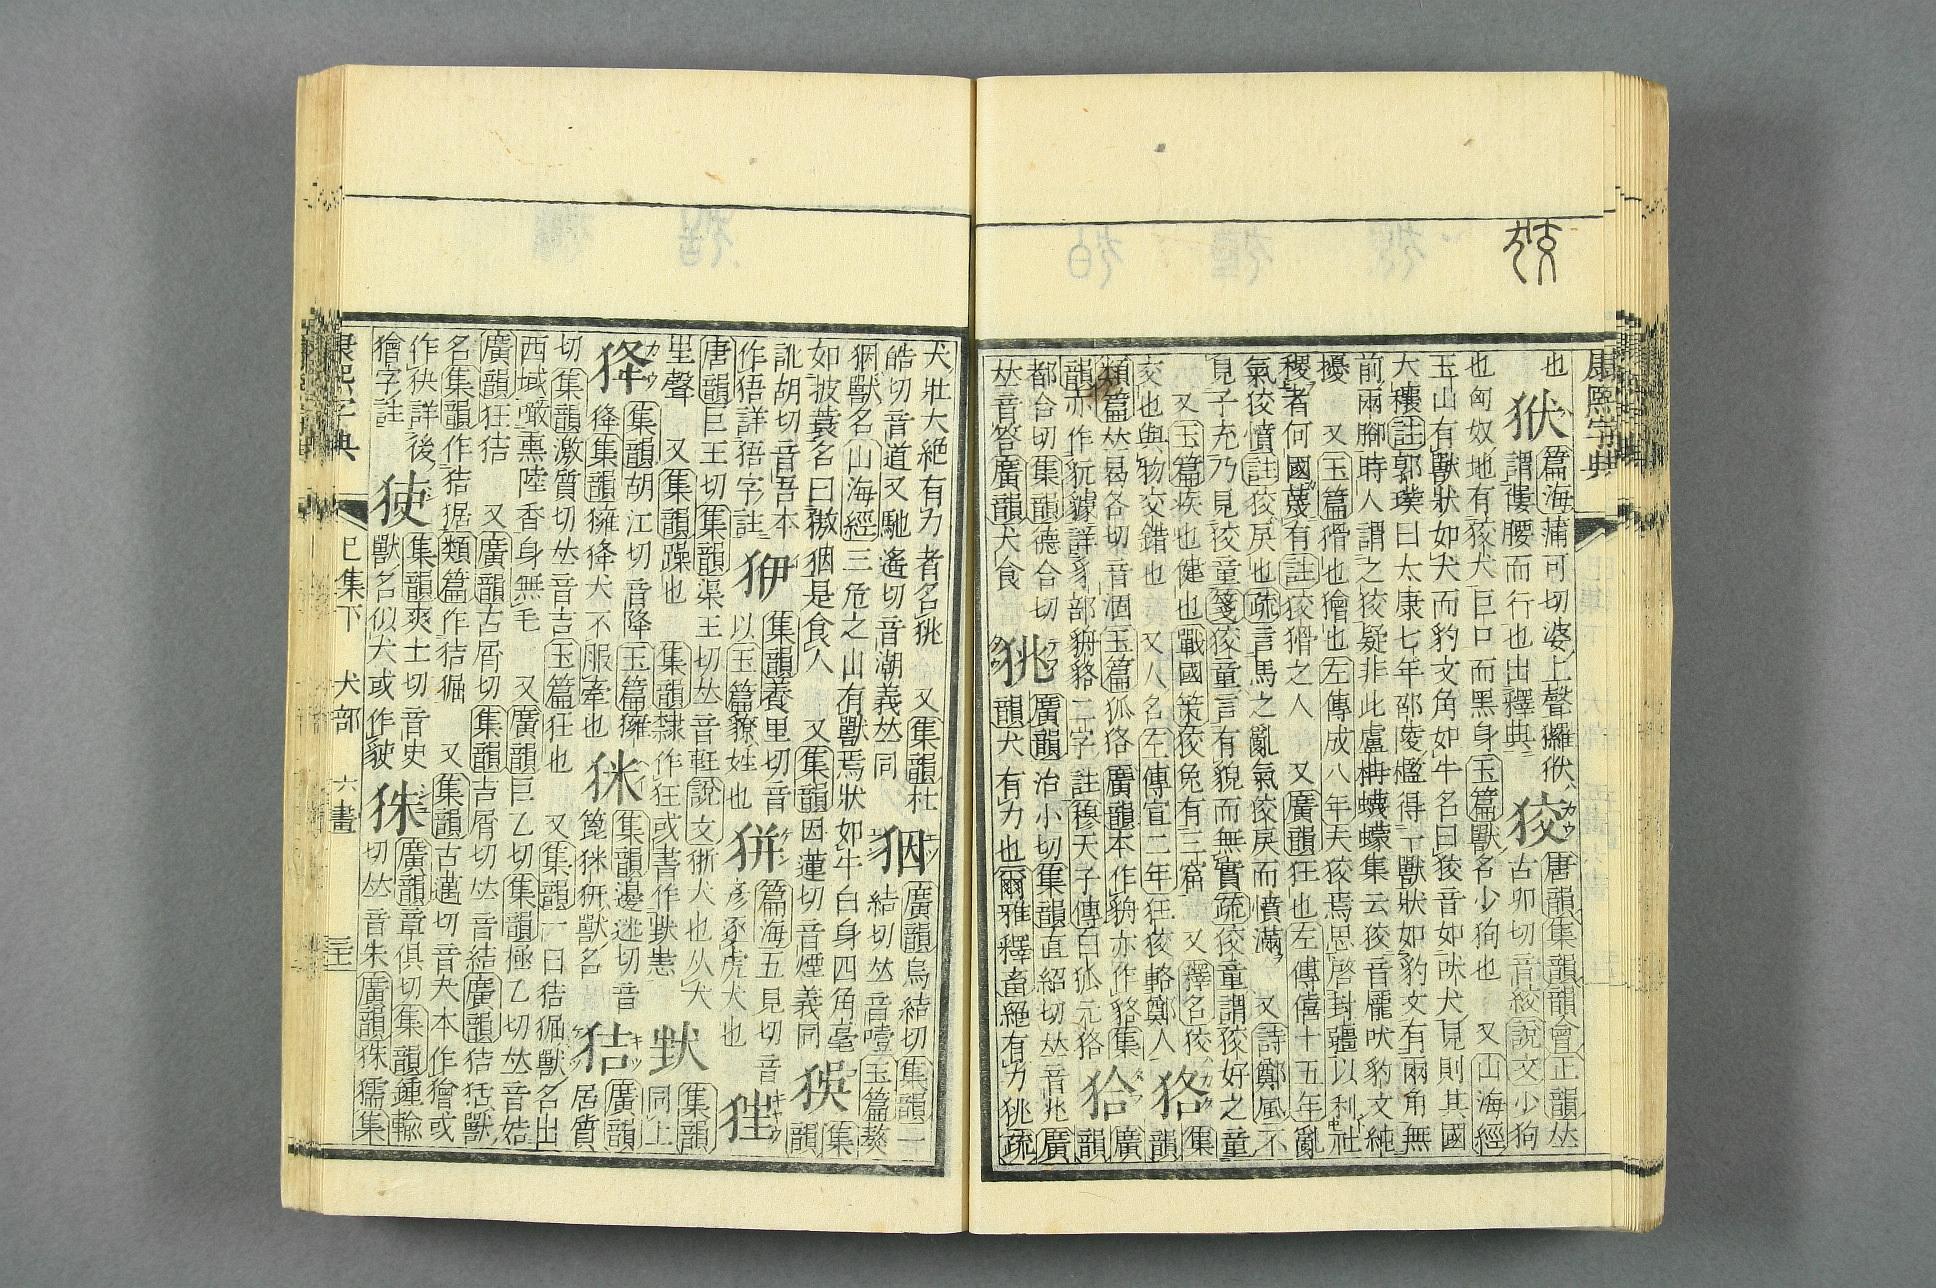 康熙字典
也
狡
篇海蒲可切婆上聲
謂僂腰而行也出釋典
唐韻集韻韻會正韻𠀤
古卯切音絞說文少狗
也匈奴地有狡犬巨口而黑身玉篇獸名少狗也 又山海經
玉山有獸狀如犬而豹文角如牛名曰狡音如吠犬見則其國
大穰註郭璞曰太康七年邵陵檻得一獸狀如豹文有兩角無
前兩腳時人謂之狡疑非此盧柟蠛蠓集云狡音狵吠豹文純
擾 又玉篇猾也獪也左傳成八年夫狡焉思啓封疆以利社
稷者何國蔑有註狡猾之人 又廣韻狂也左傳僖十五年亂
氣狡憤註狡戾也疏言馬之亂氣狡戾而憤滿 又詩鄭風不
見子充乃見狡童箋狡童言有貌而無實疏狡童謂狡好之童
又玉篇疾也健也戰國策狡兔有三窟 又釋名狡
交也與物交錯也 又人名左傳宣二年狂狡輅鄭人
狢
集
韻
類篇𠀤曷各切音涸玉篇狐狢廣韻本作貈亦作貉集
韻亦作㹰䝞詳豸部貈貉二字註穆天子傳白狐元狢
狧
廣
韻
都合切集韻德合切
𠀤音答廣韻犬食
狣
廣韻治小切集韻直紹切𠀤音兆廣
韻犬有力也爾雅釋畜絕有力狣疏
犬壯大絕有力者名狣 又集韻杜
皓切音道又馳遙切音潮義𠀤同
㹽
廣韻烏結切集韻一
結切𠀤音噎玉篇獒
㹽獸名山海經三危之山有獸焉狀如牛白身四角毫
如披蓑名曰㺊㹽是食人 又集韻因蓮切音煙義同
集
韻
訛胡切音吾本
作㹳詳㹳字註
集韻養里切音
以玉篇獠姓也
篇海五見切音
彥豕虎犬也
狂
唐韻巨王切集韻渠王切𠀤音軖說文狾犬也从犬
里聲 又集韻躁也 集韻隸作狂或書作
集韻
同上
集韻胡江切音降玉篇㺣
㹾集韻㺣㹾犬不服牽也
集韻邊迷切音
獸名
狤
廣韻
居質
切集韻激質切𠀤音吉玉篇狂也 又集韻一曰狤𤟎獸名出
西域噉熏陸香身無毛 又廣韻巨乙切集韻極乙切𠀤音姞
廣韻狂狤 又廣韻古屑切集韻吉屑切𠀤音結廣韻狤狧獸
名集韻作狤㹱類篇作狤𤟎 又集韻古邁切音夬本作獪或
作㹟詳後
獪字註
集韻爽士切音史
獸名似犬或作䝙
狇
廣韻章俱切集韻鍾輸
切𠀤音朱廣韻㹥獳集
康熙字典
巳集下 犬部 六畫